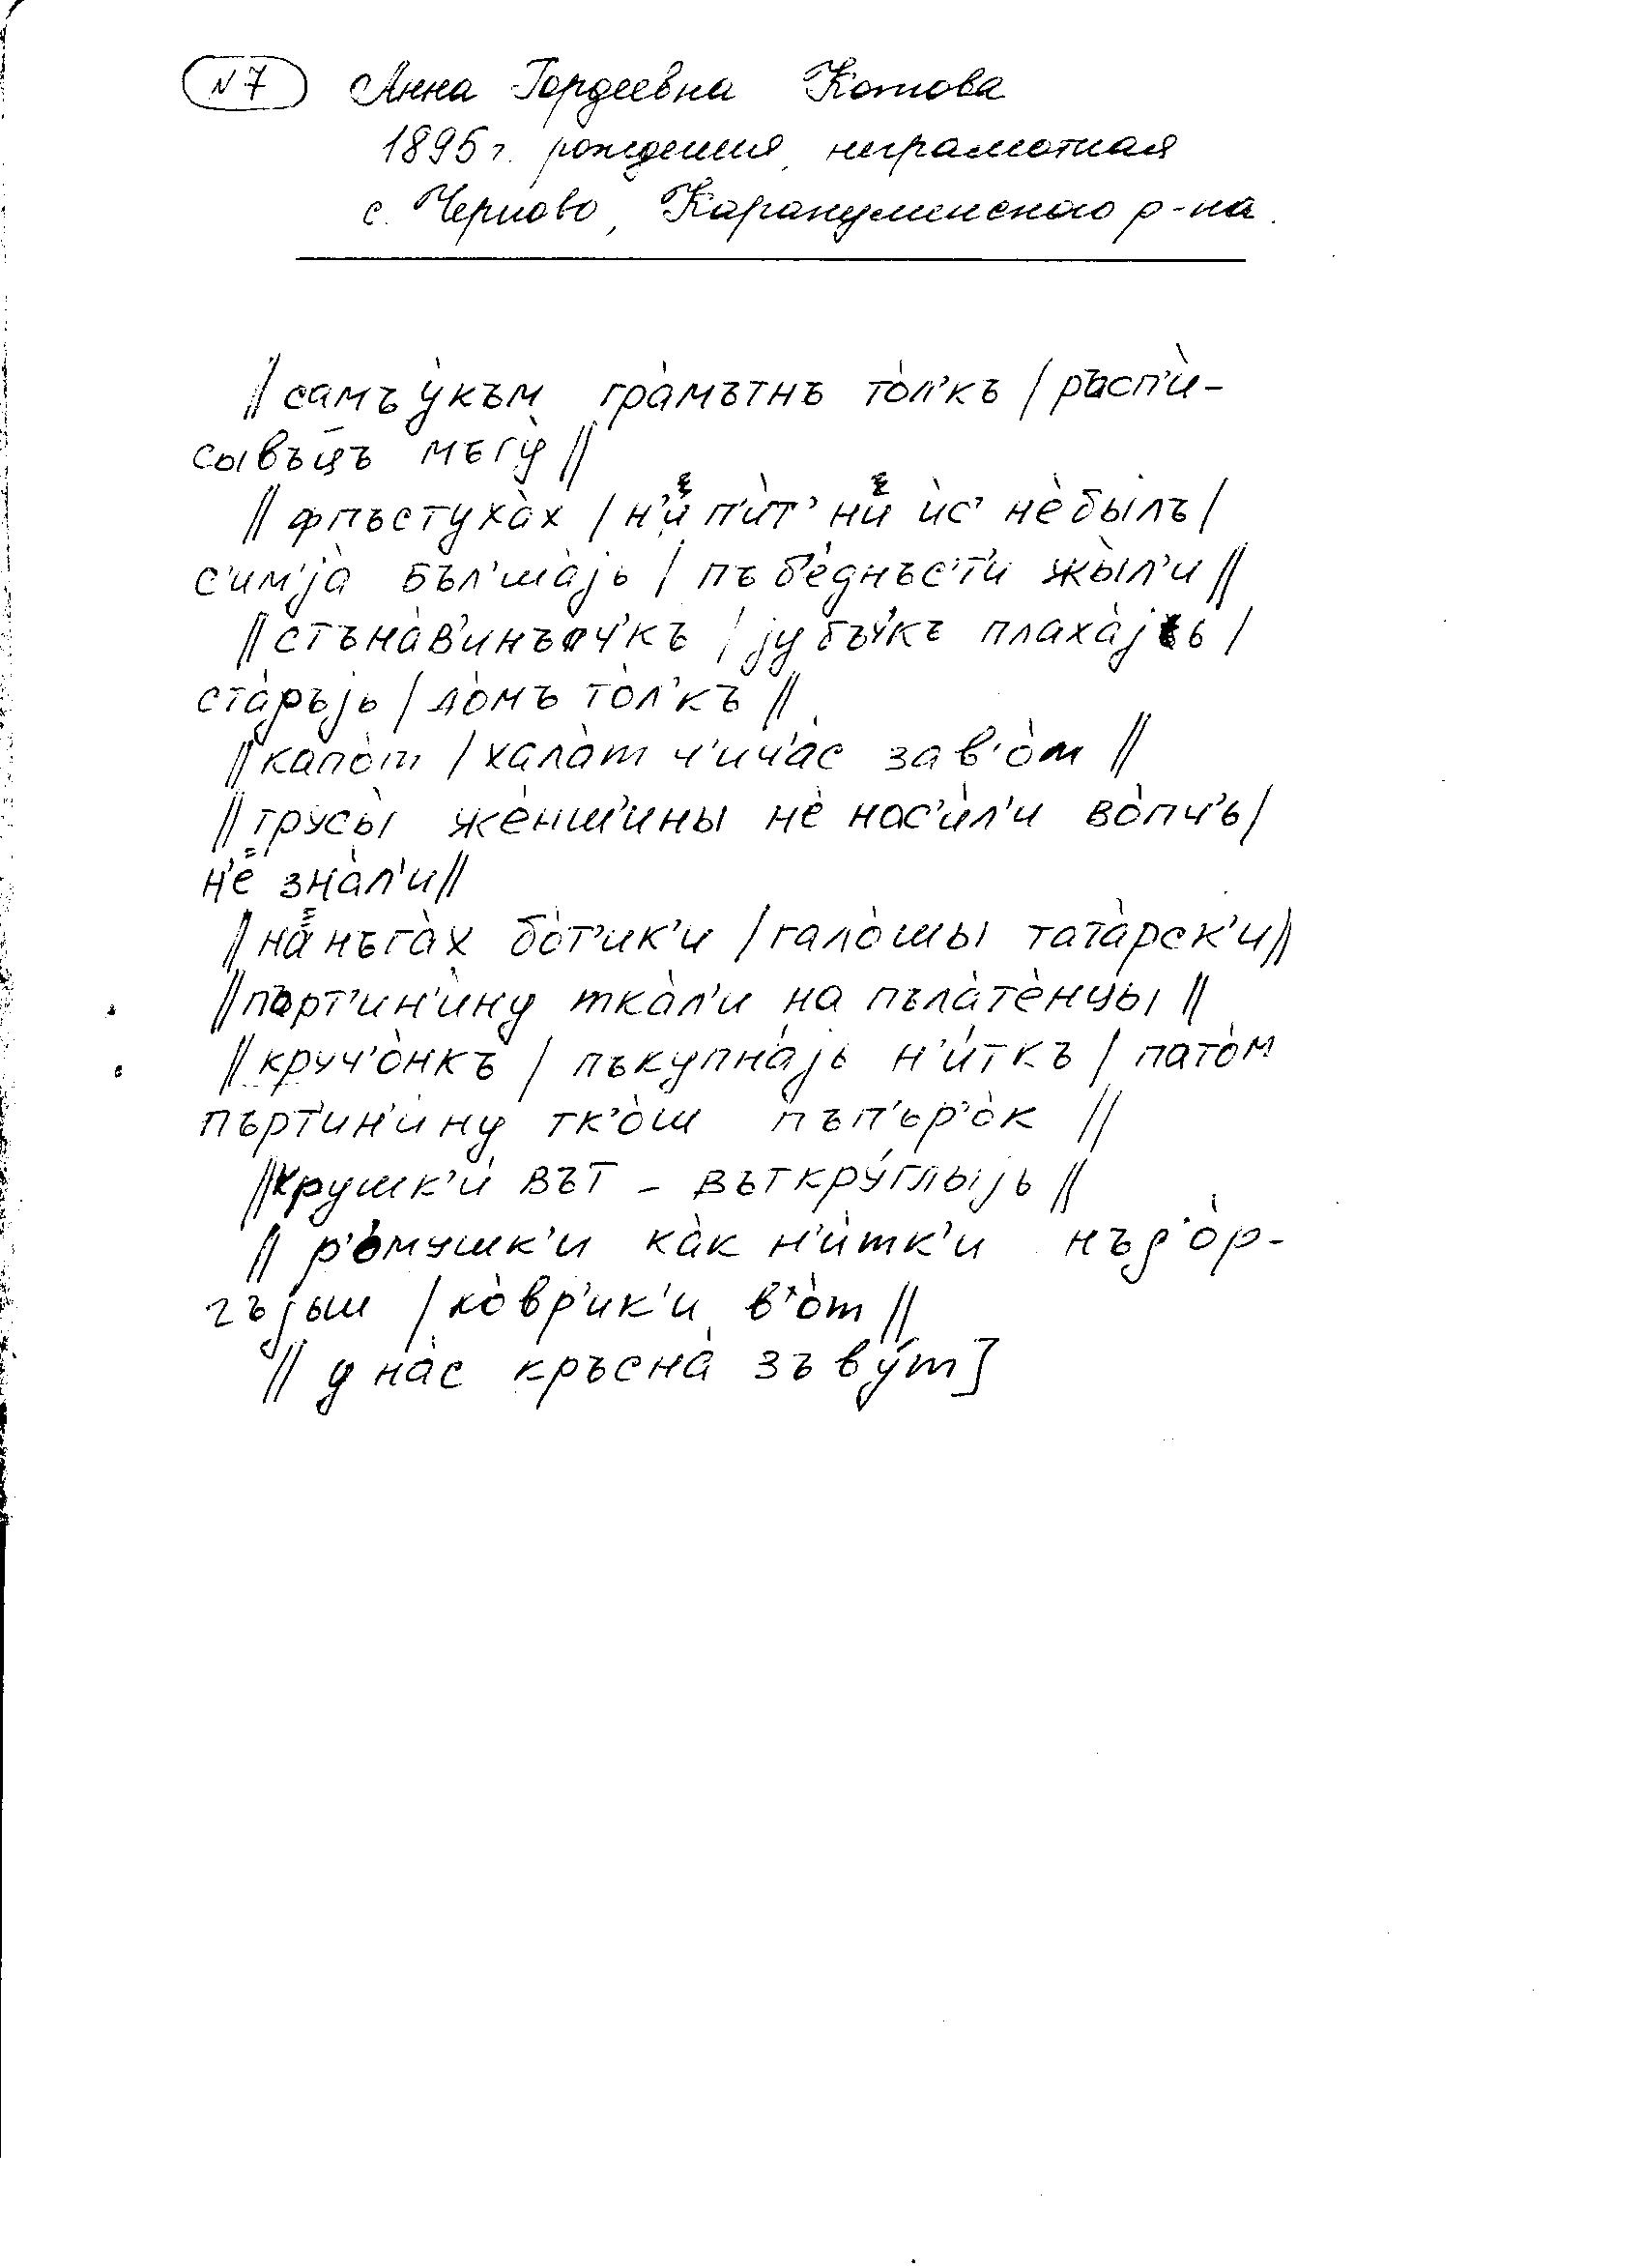 N 7 Анна Гордеевна Котова
1895 г. рождения, неграмотная
с. Черново, Каракулинского р-на.
|| самъу̀към гра̀мътнъ то̀л'къ | ръсп'ѝ-
сывъц̄ъ мъгу̀ ||
|| фпъстуха̀х | н'и п'ѝт' ни ѝс' нѐ бы̀лъ |
с'им'jа̀ бъл'ша̀jь | пъ б'ѐднъс'т'и жы̀л'и ||
|| стъна̀в'инъч'къ | jу̀бъч'къ плаха̀jь |
ста̀ръjь | до̀мъ то̀л'къ ||
|| капо̀т | хала̀т ч'ич'а̀с зав'о̀т ||
|| трусы̀ жѐнш'ины нѐ нас'ѝл'и во̀пч'ь |
н'ѐ зна̀л'и ||
|| на̀ нъга̀х бо̀т'ик'и | гало̀шы тата̀рск'и ||
|| пърт'ин'ѝну тка̀л'и на пъла̀тѐнцы ||
|| круч'о̀нкъ | пъкупна́jь н'и́ткъ | пато̀м
пърт'ин'ѝну тк'о̀ш пъп'ьр'о̀к ||
|| крушк'ѝ вът – вът кру́глыjь ||
|| р'о̀мушк'и ка̀к н'ѝтк'и нъд'о̀р-
гъjыш | ко̀вр'ик'и в'о̀т ||
|| у на̀с кръсна̀ зъву́т]